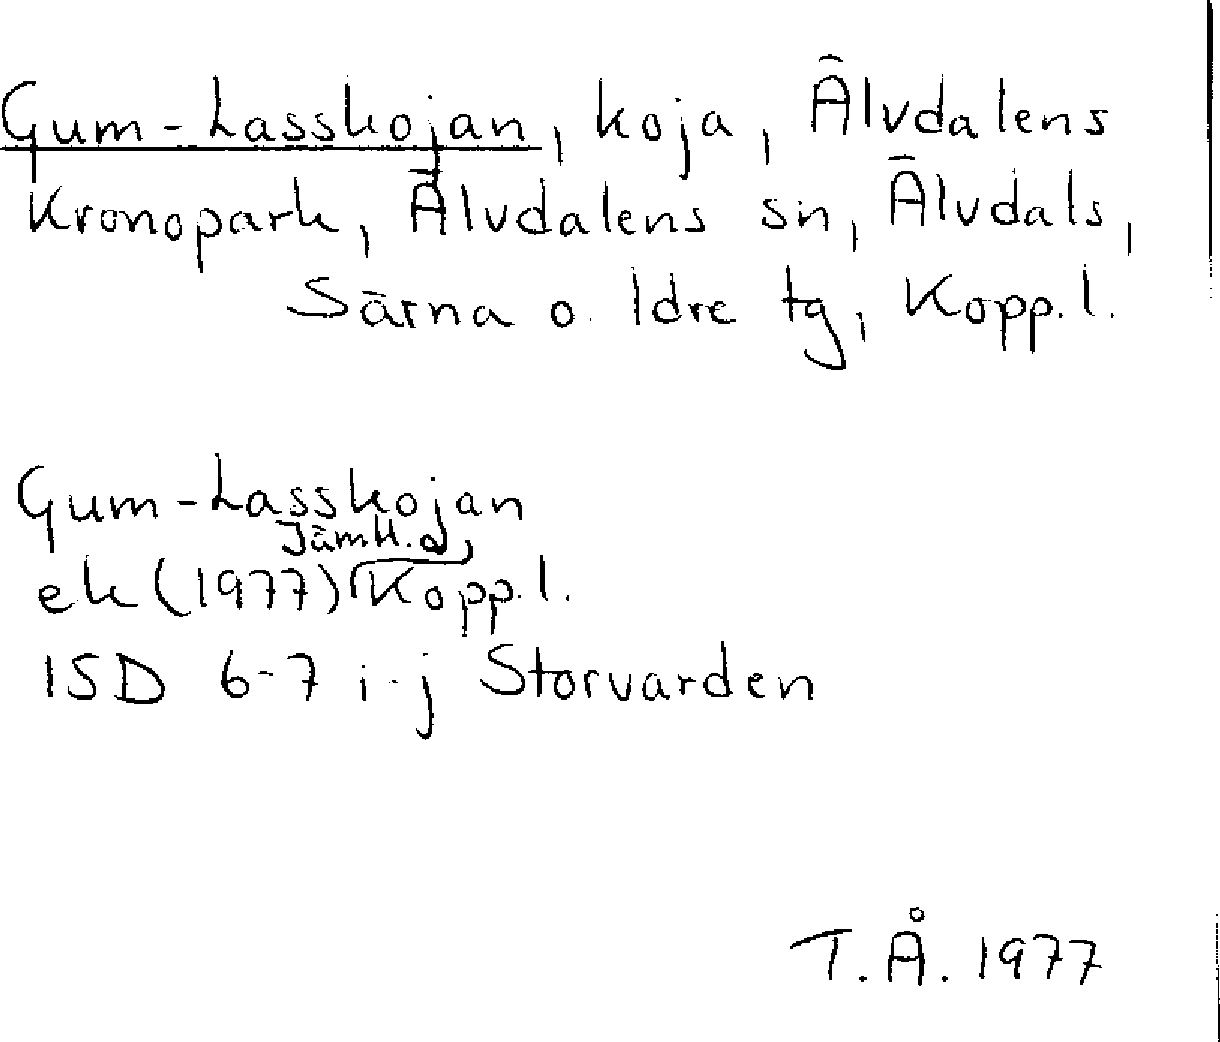 Gum-Lasskojan, koja, Älvdalens
Kronopark, Älvdalens sn, Älvdals,
Särna o. Idre tg, Kopp.l.
Gum-Lasskojan
Jämtl. o
ek (1977) Kopp.l.
15D 6-7 i-j Storvarden
T.Å. 1977